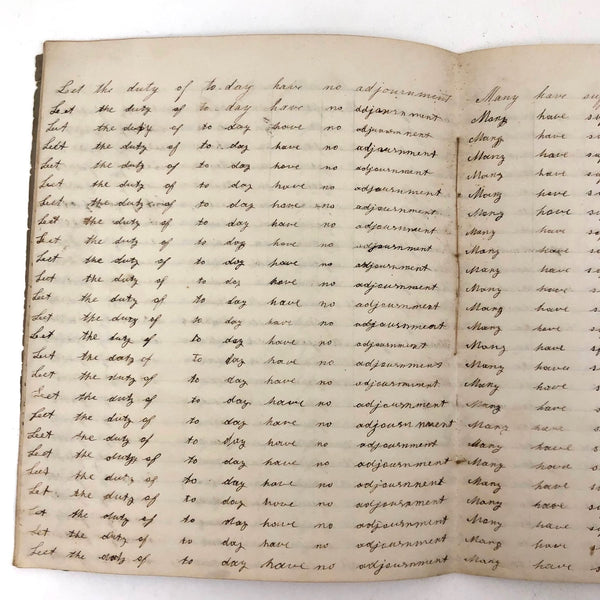 Let the duty of to-day have no adjournment
Leet the duty of to day have no adjournment
Let the duty of to day have no adjournment
Leet the duty of to day have no adjournment
Leet the duty of to day have no adjournment
Leet the duty of to day have no adjournment
Leet the duty of to day have no adjournment
Leet the duty of to day have no adjournment
Leet the duty of to day have no adjournment
Leet the duty of to day have no adjournment
Leet the duty of to day have no adjournment
Leet the duty of to day have no adjournment
Leet the duty of to day have no adjournment
Leet the duty of to day have no adjournment
Leet the duty of to day have no adjournment
Leet the duty of to day have no adjournment
Leet the duty of to day have no adjournment
Leet the duty of to day have no adjournment
Leet the duty of to day have no adjournment
Leet the duty of to day have no adjournment
Leet the duty of to day have no adjournment
Let the duty of to day have no adjournment
Let the duty of to day have no adjournment
Let the duty of to day have no adjournment
Leet the duty of to day have no adjournment
Many have
Many have
Many have
Many have
Many have
Many have
Many have
Many have
Many have
Many have
Many have
Many have
Many have
Many have
Many have
Many have
Many have
Many have
Many have
Many have
Many have
Many have
Many have
Many have
Many have